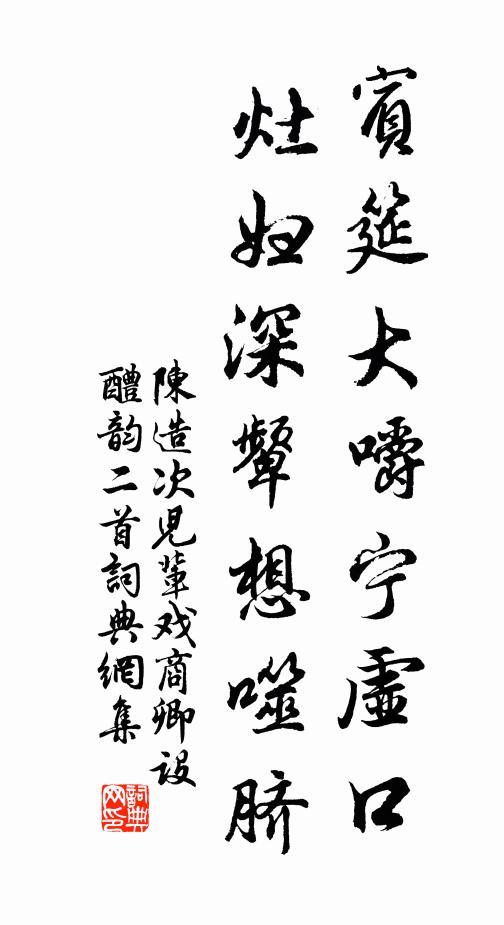 賓筵大嚼宁虛口
灶妇深颦想噬脐
陳造次児輩戏商卿設
醴韵二首詞典網集
詞典网印